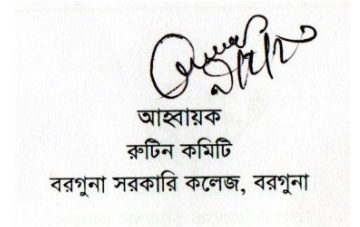 আহ্বায়ক
রুটিন কমিটি
বরগুনা সরকারি কলেজ, বরগুনা